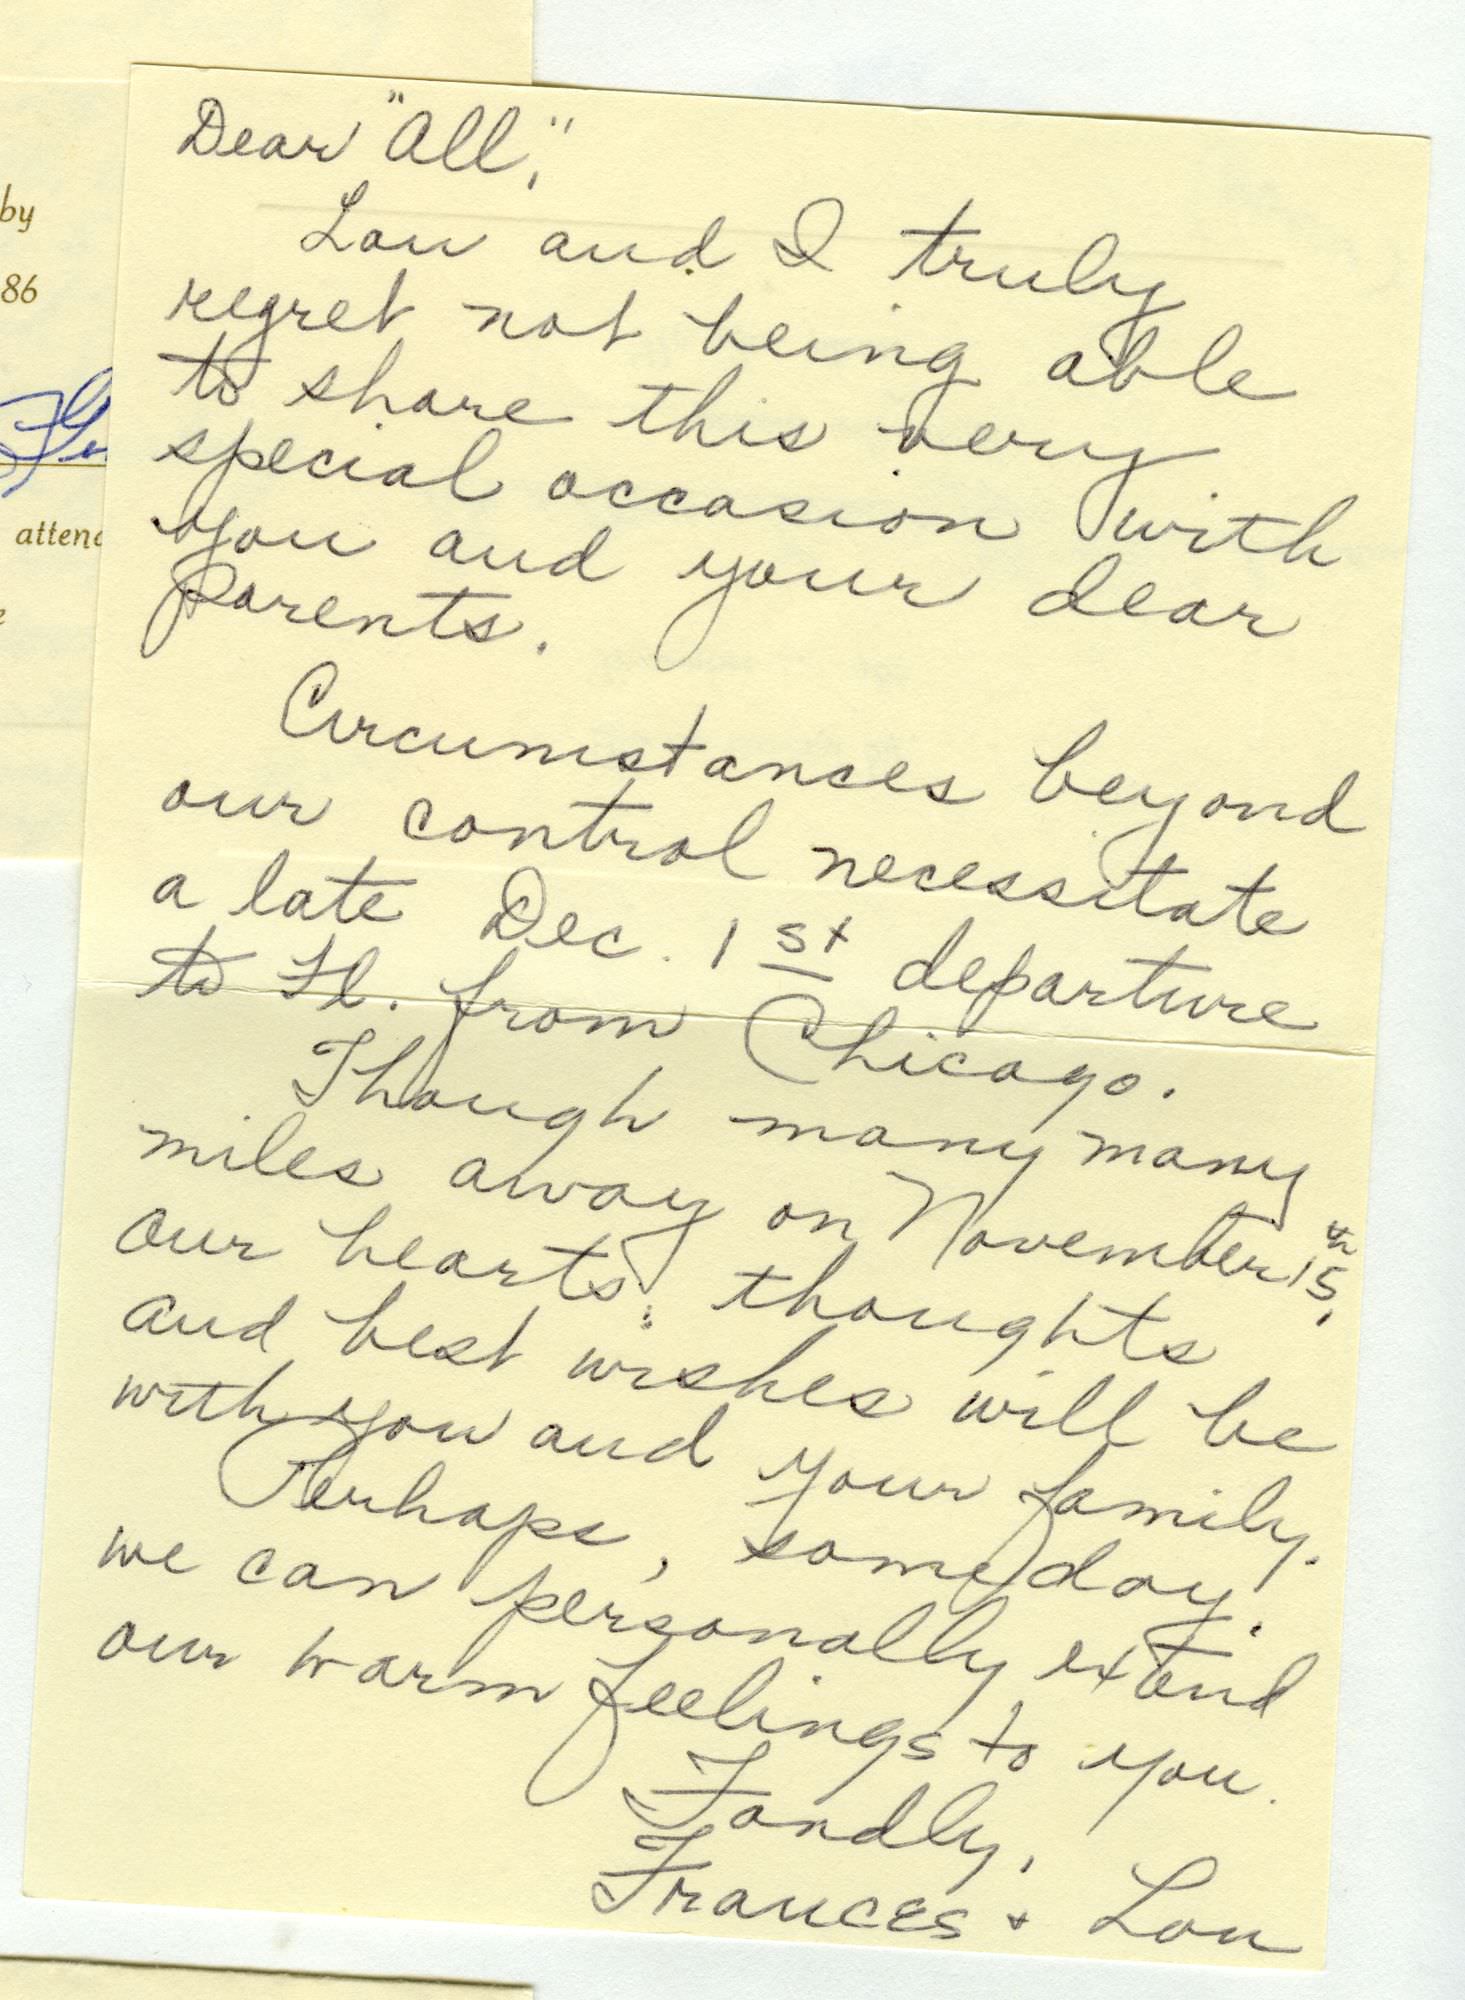 by
86
attend
Dear "All,"
Lou and I truly
regret not being able
to share this very
special occasion with
you and your dear
parents.
Circumstances beyond
our control necessitate
a late Dec. 1st departure
to Fl. from Chicago.
Though many many
miles away on November 15th,
our hearts, thoughts
and best wishes will be
with you and your family.
Perhaps, someday,
we can personally extend
our warm feelings to you.
Fondly,
Frances + Lou